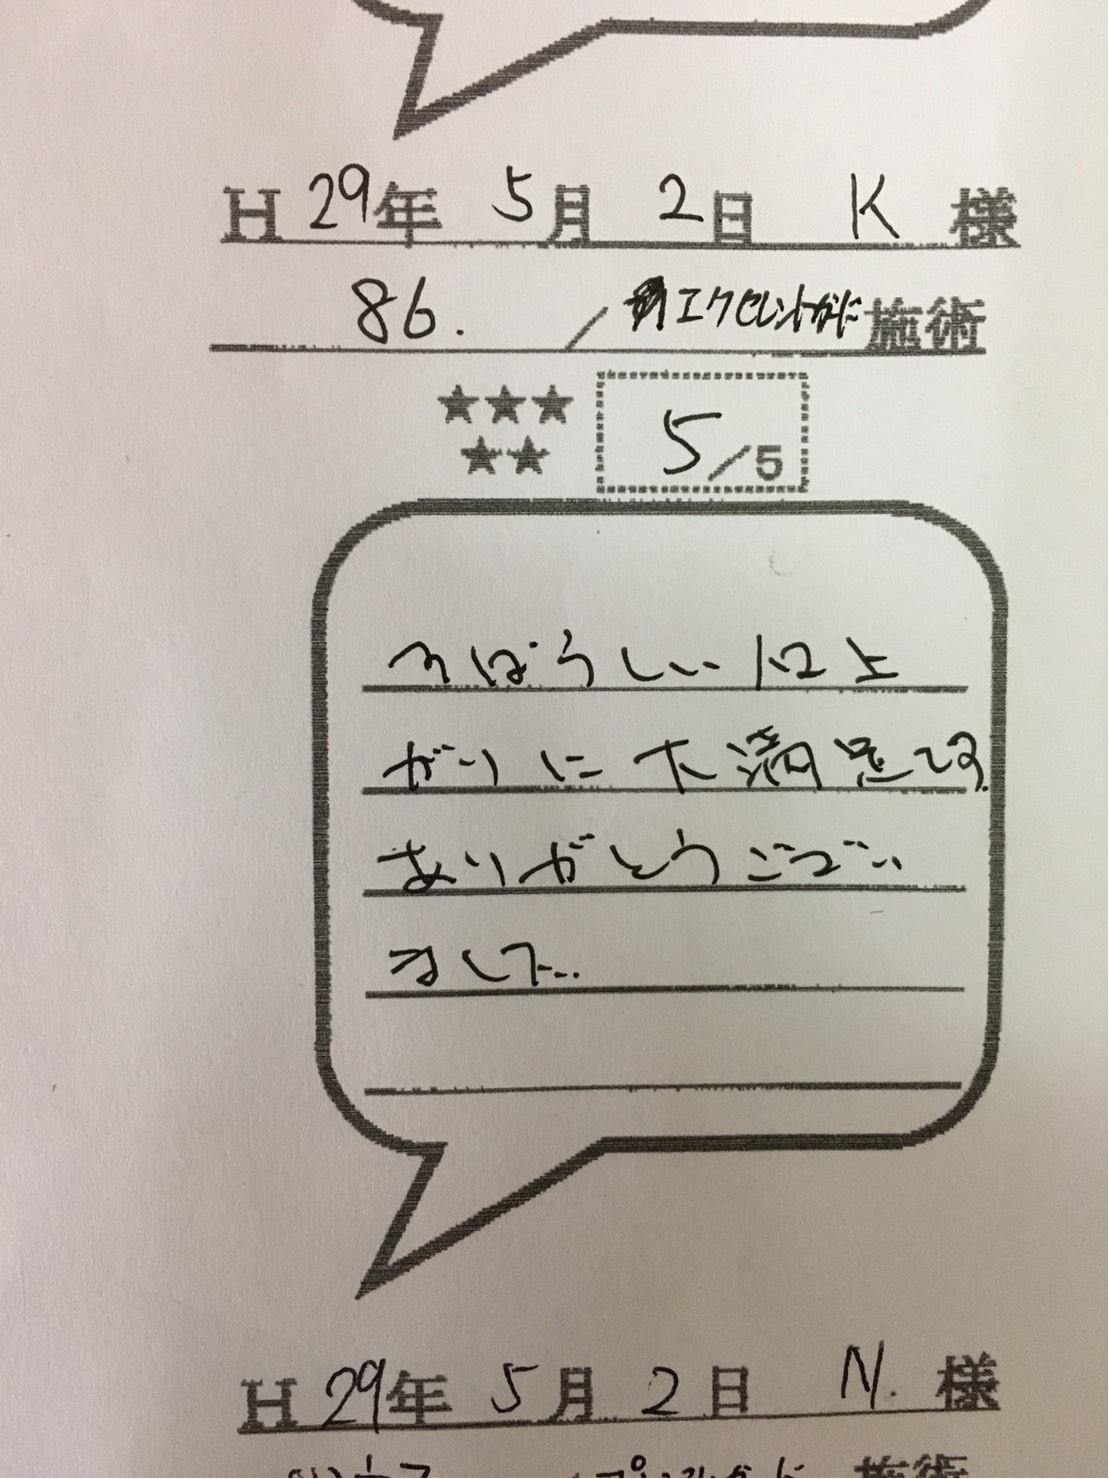 H 29年 5月 2日 K 様
86. / エクセレントガード 施術
★★★
★★
5/5
すばらしい仕上
がりに大満足です。
ありがとうござい
ました。
H 29年 5月 2日 N. 様
施術